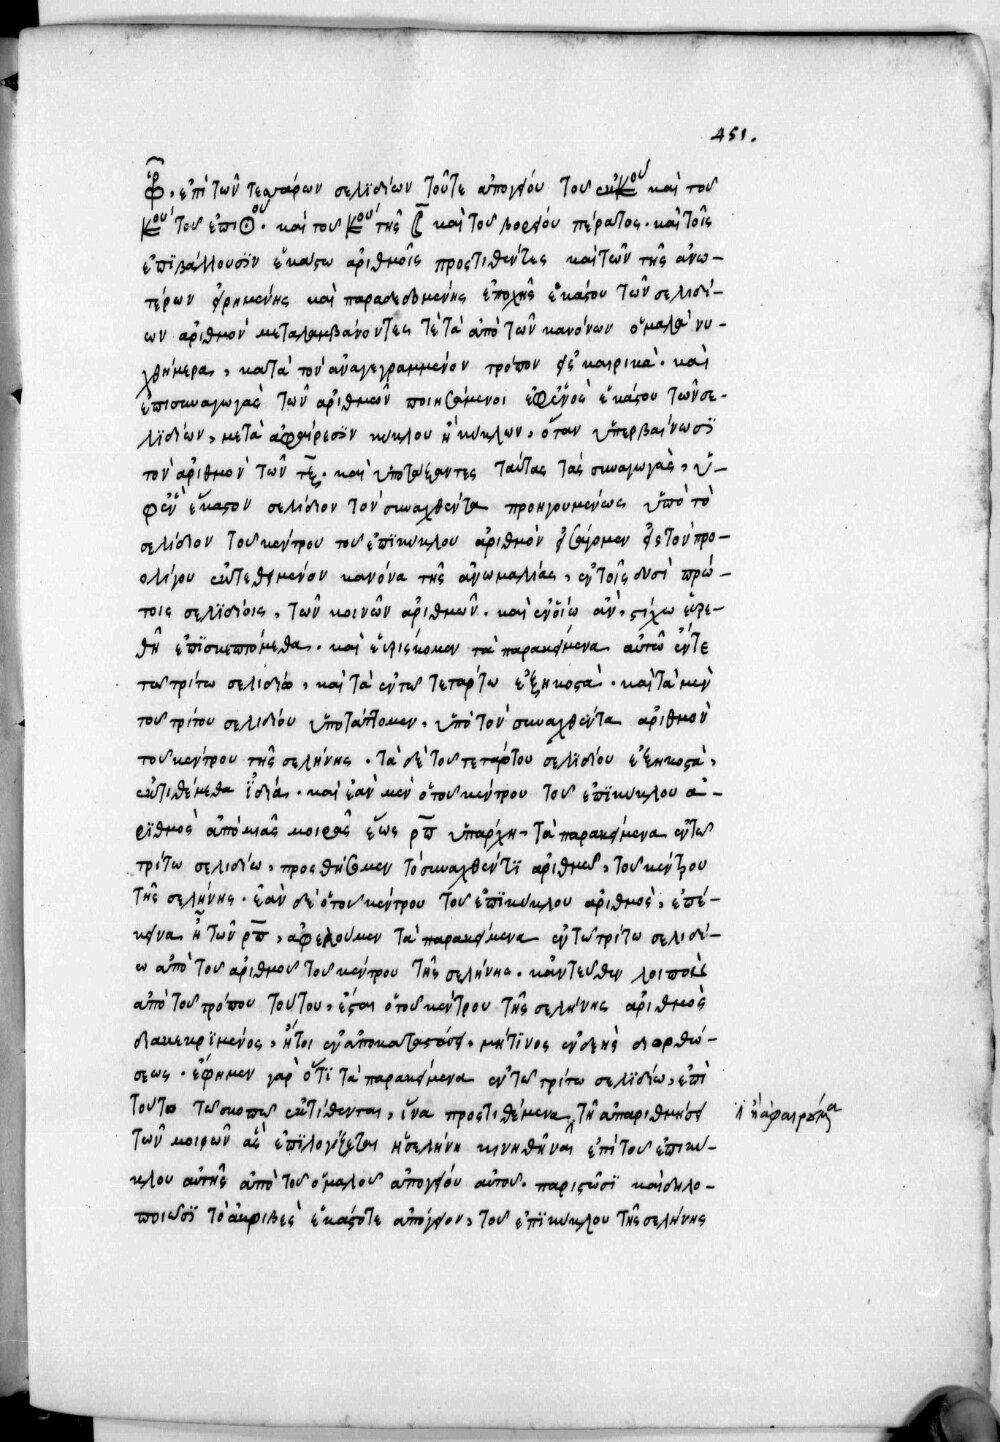 451.
ἐπὶ τῶν τεσσάρων σελιδίων τοῦτε ἀπογείου τοῦ ἐκκου καὶ τοῦ
κου τοῦ ἐπι⊙ου. καὶ τοῦ κου τῆς καὶ τοῦ βορείου πέρατος. καὶ τοῖς
ἐπιβάλλουσιν ἑκάστω ἀριθμοῖς προστιθέντες καὶ τῶν τῆς ἀνω-
τέρων εἰρημένης καὶ παραδεδομένης ἐποχῆς ἑκάστου τῶν σελιδί-
ων ἀριθμὸν μεταλαμβάνοντες τὲ τὰ ἀπὸ τῶν κανόνων ὁμαλὰ νυ-
χθήμερα, κατὰ τὸν ἀναγεγραμμένον τρόπον εἰς καιρικά. καὶ
ἐπισυναγωγὰς τῶν ἀριθμῶν ποιησάμενοι ἐφενὸς ἑκάστου τῶν σε-
λιδίων, μετὰ ἀφαίρεσιν κύκλου ἢ κύκλων, ὅταν ὑπερβαίνωσι
τὸν ἀριθμὸν τῶν τξ. καὶ ὑποτάξαντες ταύτας τὰς συναγωγὰς, ὑ-
φὲν ἕκαστον σελίδιον τὸν συναχθέντα προηγουμένως ὑπὸ τὸ
σελίδιον τοῦ κέντρου τοῦ ἐπικύκλου ἀριθμὸν εἰσάγομεν εἰς τὸν πρὸ
ὀλίγου ἐκτεθειμένον κανόνα τῆς ἀνωμαλίας, ἐν τοῖς δυσὶ πρώ-
τοις σελιδίοις, τῶν κοινῶν ἀριθμῶν. καὶ ἐν οἵω ἂν, στίχω εὑρε-
θῆ ἐπισκεπτόμεθα. καὶ εὑρίσκομεν τὰ παρακείμενα αὐτῶ ἔντε
τῶ τρίτω σελιδίω, καὶ τὰ ἐν τῶ τετάρτω ἑξηκοστά. καὶ τὰ μὲν
τοῦ τρίτου σελιδίου ὑποτάττομεν, ὑπὸ τὸν συναχθέντα ἀριθμὸν
τοῦ κέντρου τῆς σελήνης. τὰ δὲ τοῦ τετάρτου σελιδίου ἑξηκοστά,
ἐκτιθέμεθα ἰδία. καὶ ἐὰν μὲν ὁ τοῦ κέντρου τοῦ ἐπικύκλου ἀ-
ριθμὸς ἀπὸ μιᾶς μοιρᾶς ἕως ρπ ὑπάρχη, τὰ παρακείμενα ἐν τῶ
τρίτω σελιδίω, προσθήσομεν τῶ συναχθέντι ἀριθμῶ, τοῦ κέντρου
τῆς σελήνης. ἐὰν δὲ ὁ τοῦ κέντρου τοῦ ἐπικύκλου ἀριθμὸς, ἐπέ-
κεινα ἦ τῶν ρπ, ἀφελοῦμεν τὰ παρακείμενα ἐν τῶ τρίτω σελιδί-
ω ἀπὸ τοῦ ἀριθμοῦ τοῦ κέντρου τῆς σελήνης. κἀντεῦθεν λοιπὸν
ἀπὸ τοῦ τρόπου τούτου, ἔσται ὁ τοῦ κέντρου τῆς σελήνης ἀριθμὸς
διακεκριμένος, ἤτοι ἐν ἀποκαταστάσει, μήτινος ἐνδεὴς διορθώ-
σεως. ἔφημεν γὰρ ὅτι τὰ παρακείμενα ἐν τῶ τρίτω σελιδίω, ἐπὶ
τούτω τῶ σκοπῶ ἐκτίθενται, ἵνα προστιθέμενα τῆ ἀπαριθμήσει
ἢ ἀφαιρούμενα
τῶν μοιρῶν ἃς ἐπιλογίζεται ἡ σελήνη κινηθῆναι ἐπὶ τοῦ ἐπικύ-
κλου αὐτῆς ἀπὸ τοῦ ὁμαλοῦ ἀπογείου αὐτοῦ. παριστῶσι καὶ δηλο-
ποιῶσι τὸ ἀκριβὲς ἑκάστοτε ἀπόγειον, τοῦ ἐπικύκλου τῆς σελήνης